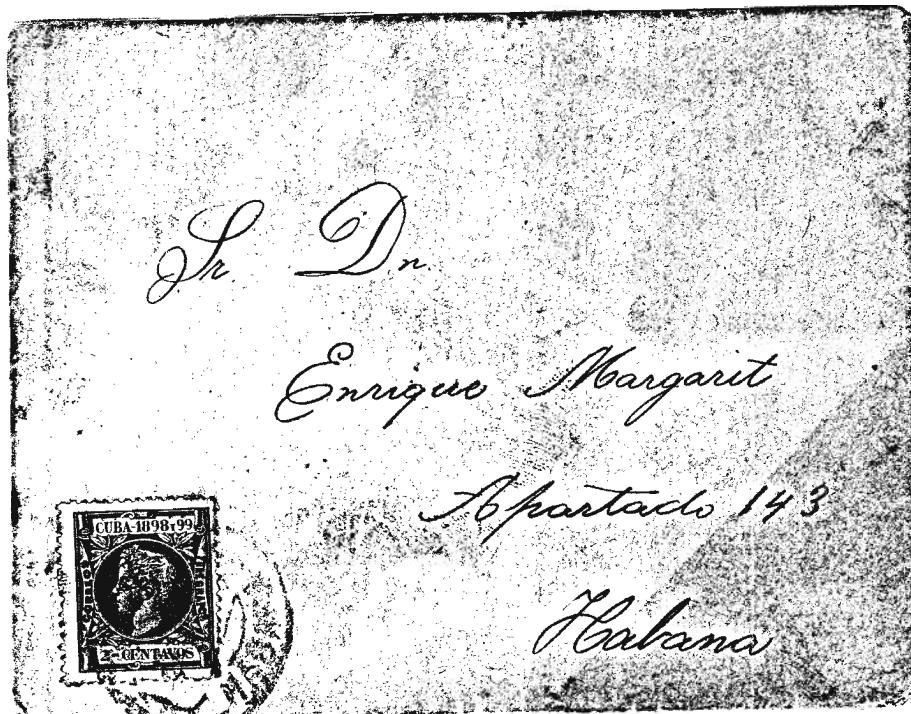 Sr. Dn.
Enrique Margarit
Apartado 143
Habana
CUBA-1898 y 99
CENTAVOS